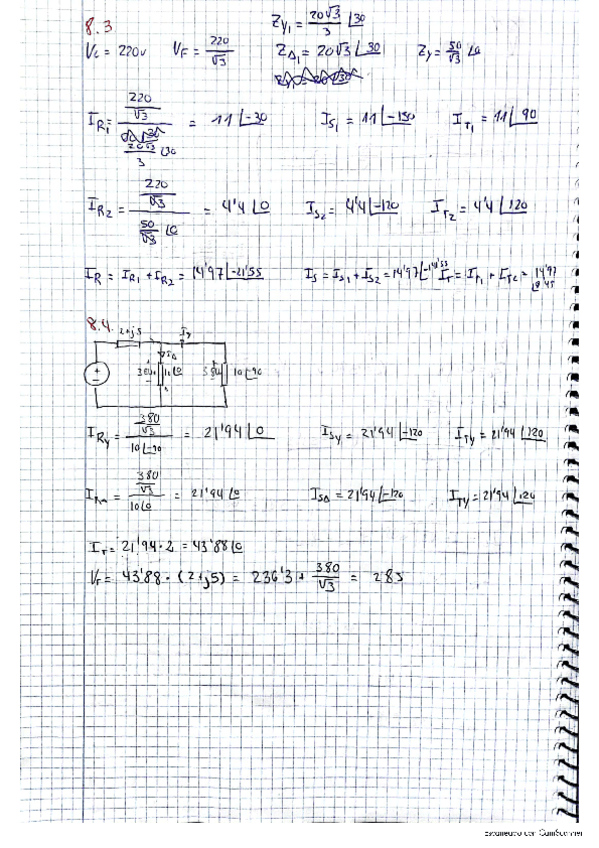 8.3
Z_Y1 = 20√3/3 ∠30
V_L = 220V V_F = 220/√3 Z_Δ1 = 20√3 ∠30 Z_Y = 50/√3 ∠0
I_R1 = (220/√3)/(20√3/3 ∠30) = 11∠-30 I_S1 = 11∠-150 I_T1 = 11∠90
I_R2 = (220/√3)/(50/√3 ∠0) = 4'4∠0 I_S2 = 4'4∠-120 I_T2 = 4'4∠120
I_R = I_R1 + I_R2 = 14'97∠-21'55 I_S = I_S1 + I_S2 = 14'97∠-141'55 I_T = I_T1 + I_T2 = 14'97
8.4.
2+j5
10∠0 10∠-90
I_RY = (380/√3)/(10∠-90) = 21'94∠0 I_SY = 21'94∠-120 I_TY = 21'94∠120
I_RΔ = (380/√3)/(10∠0) = 21'94∠0 I_SΔ = 21'94∠-120 I_TY = 21'94∠120
I_T = 21'94·2 = 43'88∠0
V_T = 43'88·(2+j5) = 236'3 + 380/√3 = 285
Escaneado con CamScanner